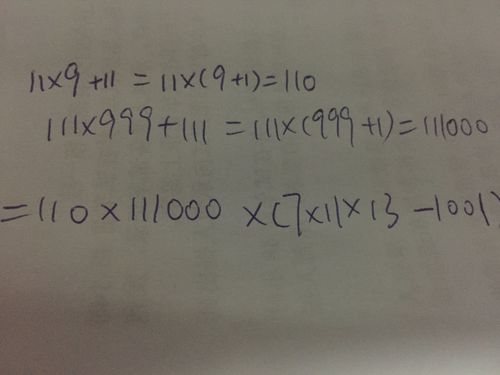 11×9+11=11×(9+1)=110
111×999+111=111×(999+1)=111000
=110×111000×(7×11×13-1001)